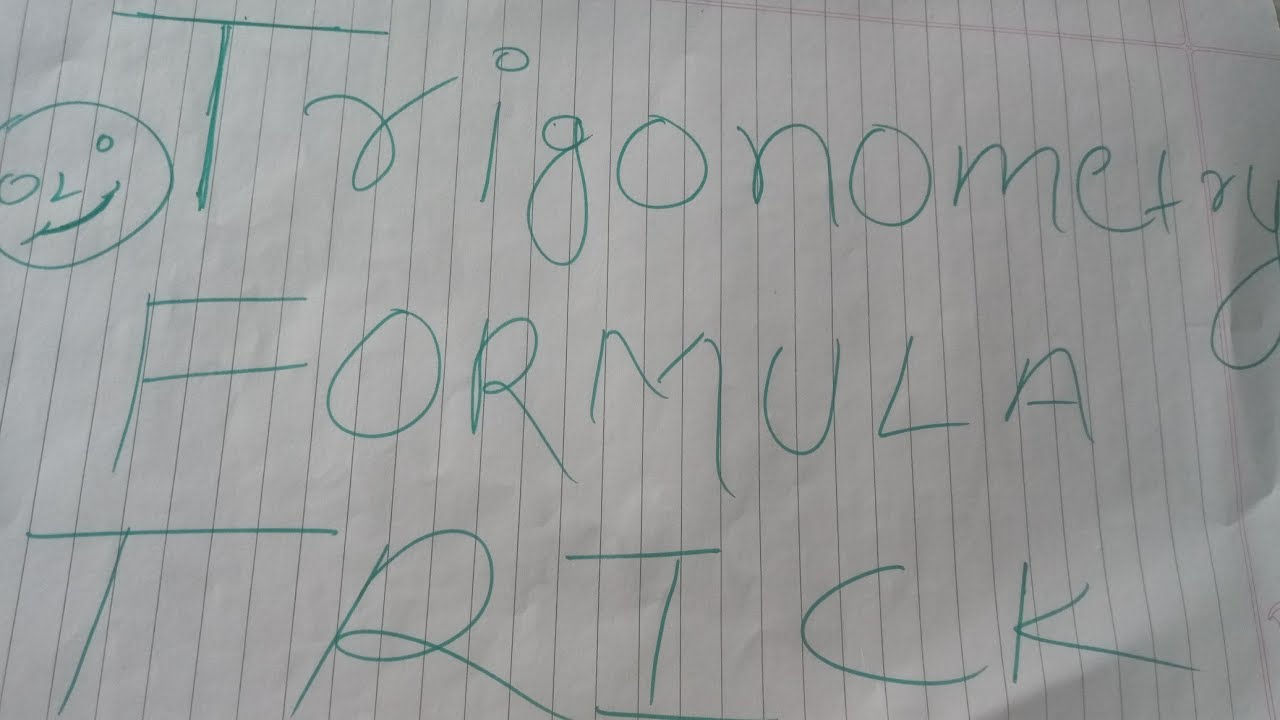 Trigonometry
FORMULA
TRICK